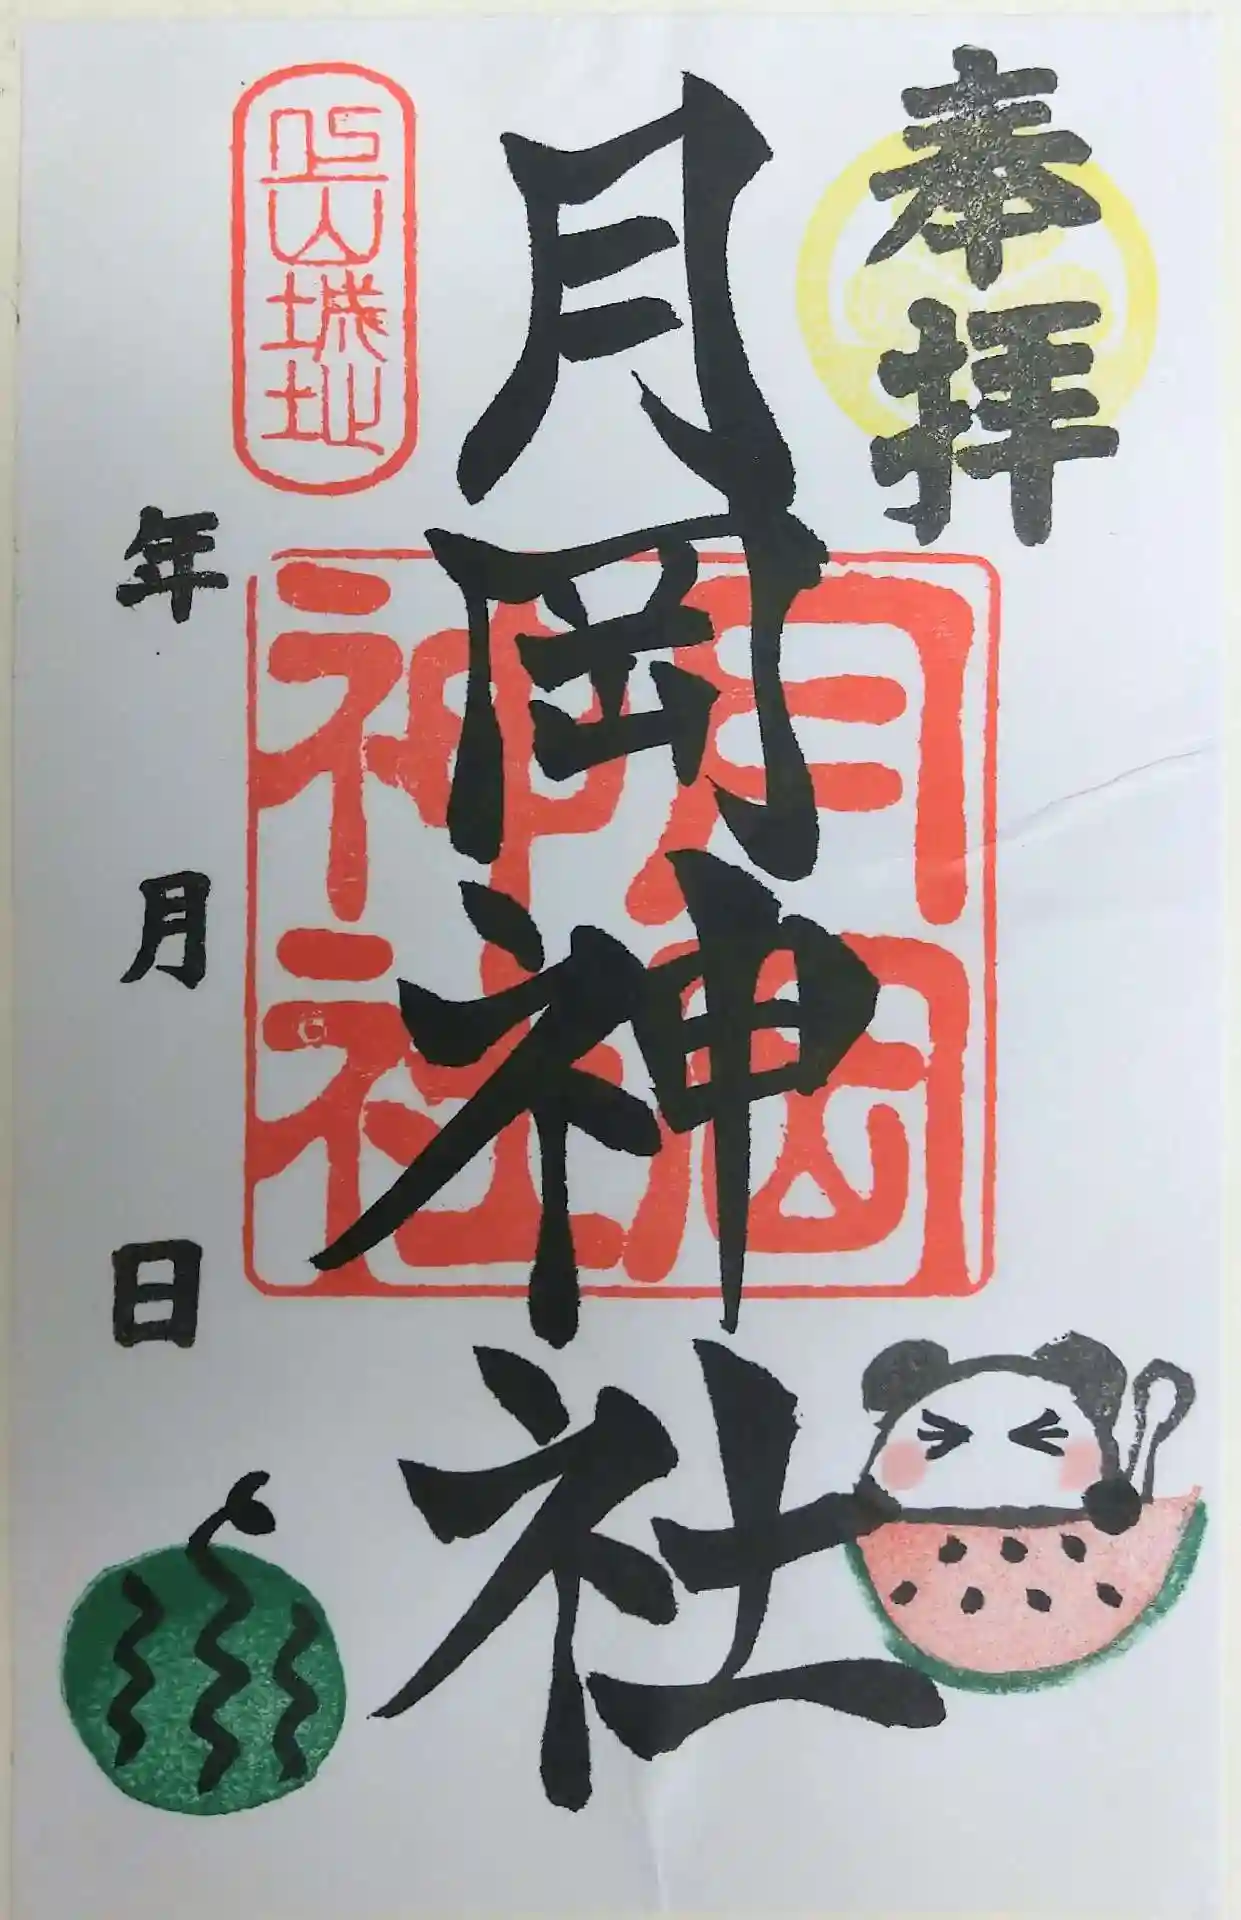 奉拝
月岡神社
月岡神社
上山城址
年
月
日